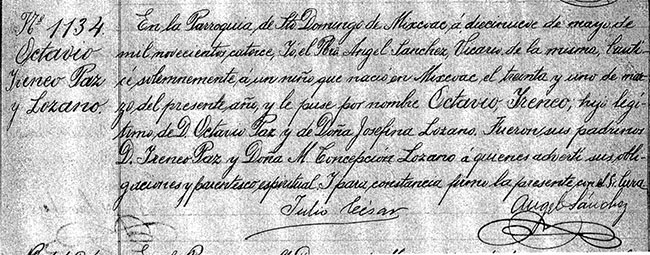 Nº 1134.
Octavio
Ireneo Paz
y Lozano.
En la Parroquia, de Sto Domingo de Mixcoac, a diecinueve de mayo, de
mil novecientos catorce, Yo, el Pbro Angel Sanchez, Vicario, de la misma, bauti-
cé solemnemente, a un niño que nacio en Mixcoac, el treinta y uno de mar-
zo, del presente año, y le puse por nombre Octavio Ireneo, hijo legi-
timo, de D. Octavio Paz y de Doña Josefina Lozano. Fueron, sus padrinos
D. Ireneo Paz y Doña M. Concepcion Lozano á quienes adverti sus obli-
gaciones y parentesco espiritual. Y para constancia firmo la presente con el Sr. Cura.
Julio César
Angel Sanchez